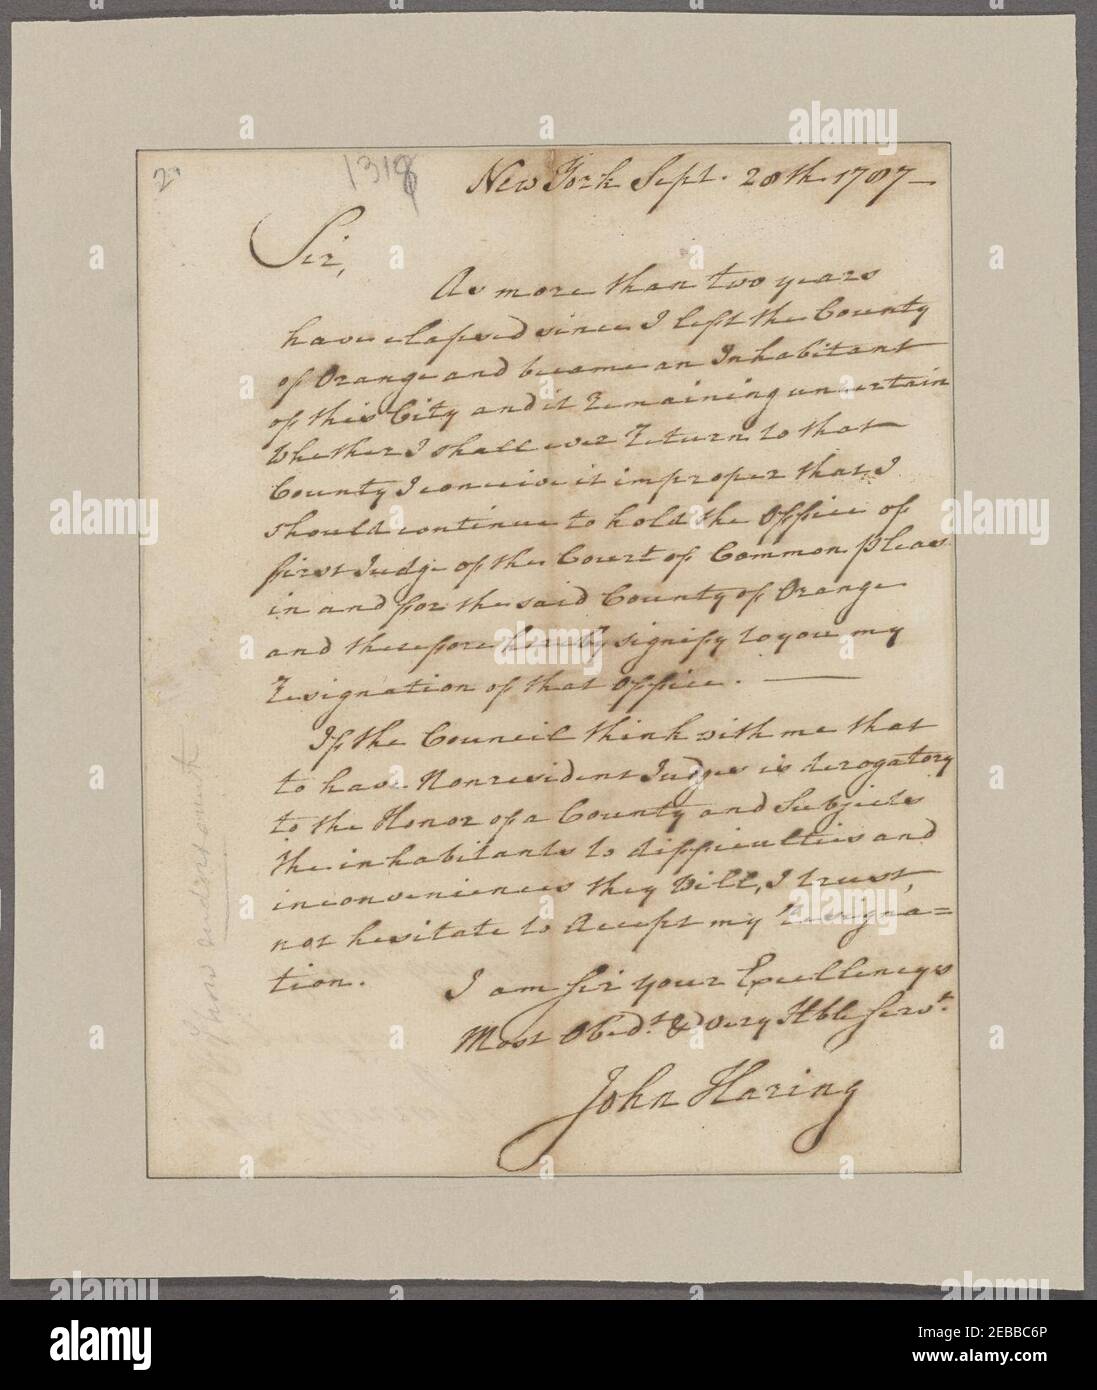 2
1318
New York Sept. 28th. 1787—
Sir,
As more than two years
have elapsed since I left the County
of Orange and became an Inhabitant
of this City and it remaining uncertain
whether I shall ever return to that
County I conceive it improper that I
should continue to hold the Office of
first Judge of the Court of Common pleas
in and for the said County of Orange
and therefore hereby signify to you my
resignation of that office. —
If the Council think with me that
to have Nonresident Judges is derogatory
to the Honor of a County and Subjects
the inhabitants to difficulties and
inconveniences they will, I trust,
not hesitate to accept my resigna=
tion.
I am Sir your Excellencys
Most Obedt. & very Hble Servt.
John Haring
alamy
Image ID: 2EBBC6P
www.alamy.com